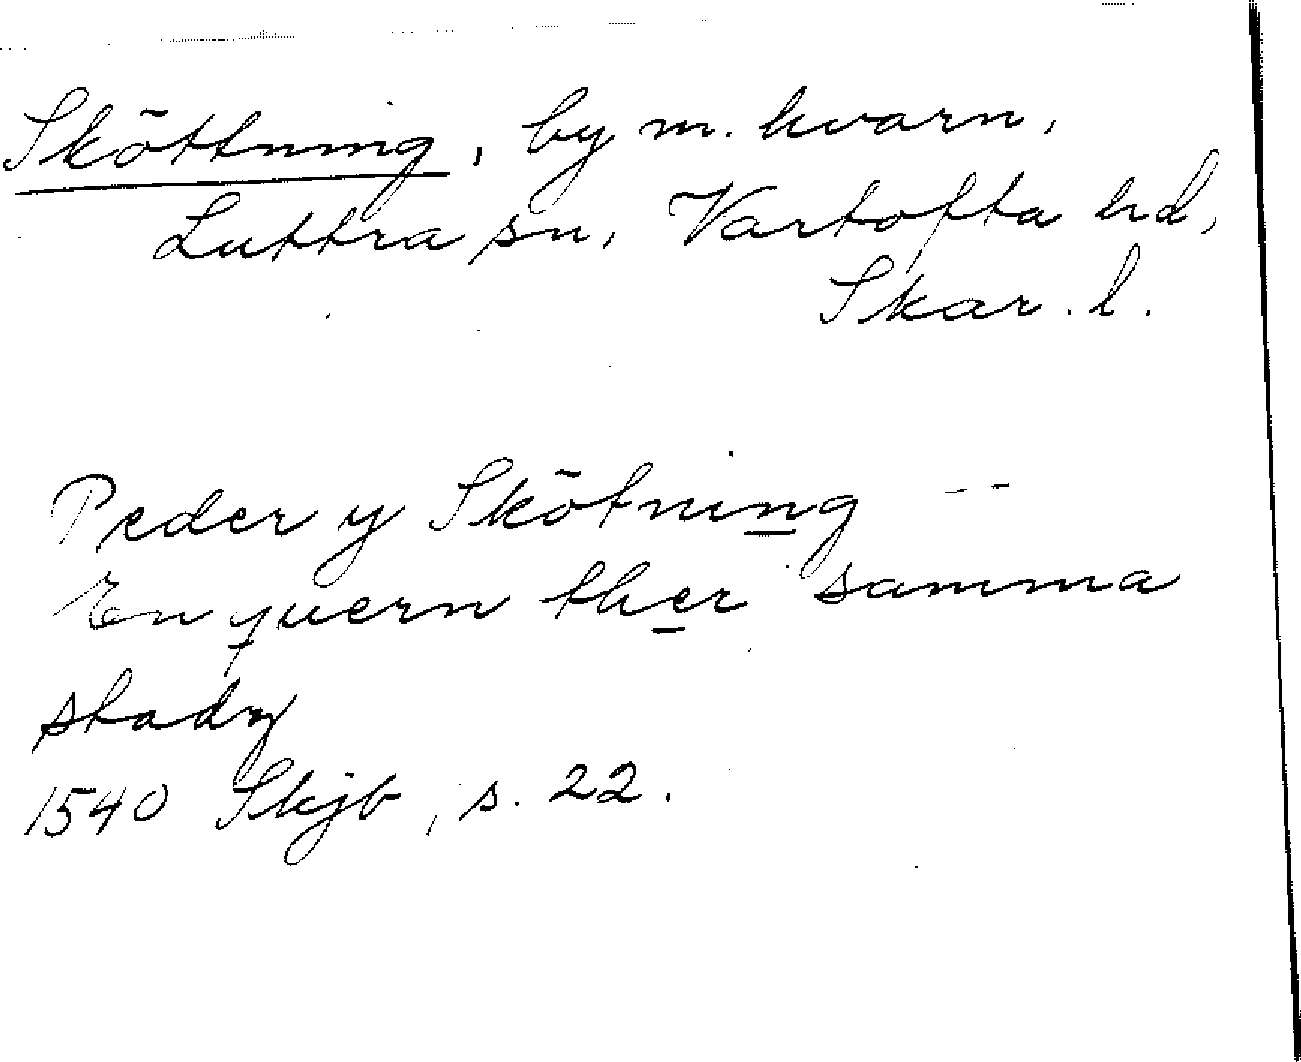 Sköttning, by m. kvarn,
Luttra sn, Vartofta hd,
Skar. l.
Peder y Skötning --
En quern ther samma
stady
1540 Skjb, s. 22.